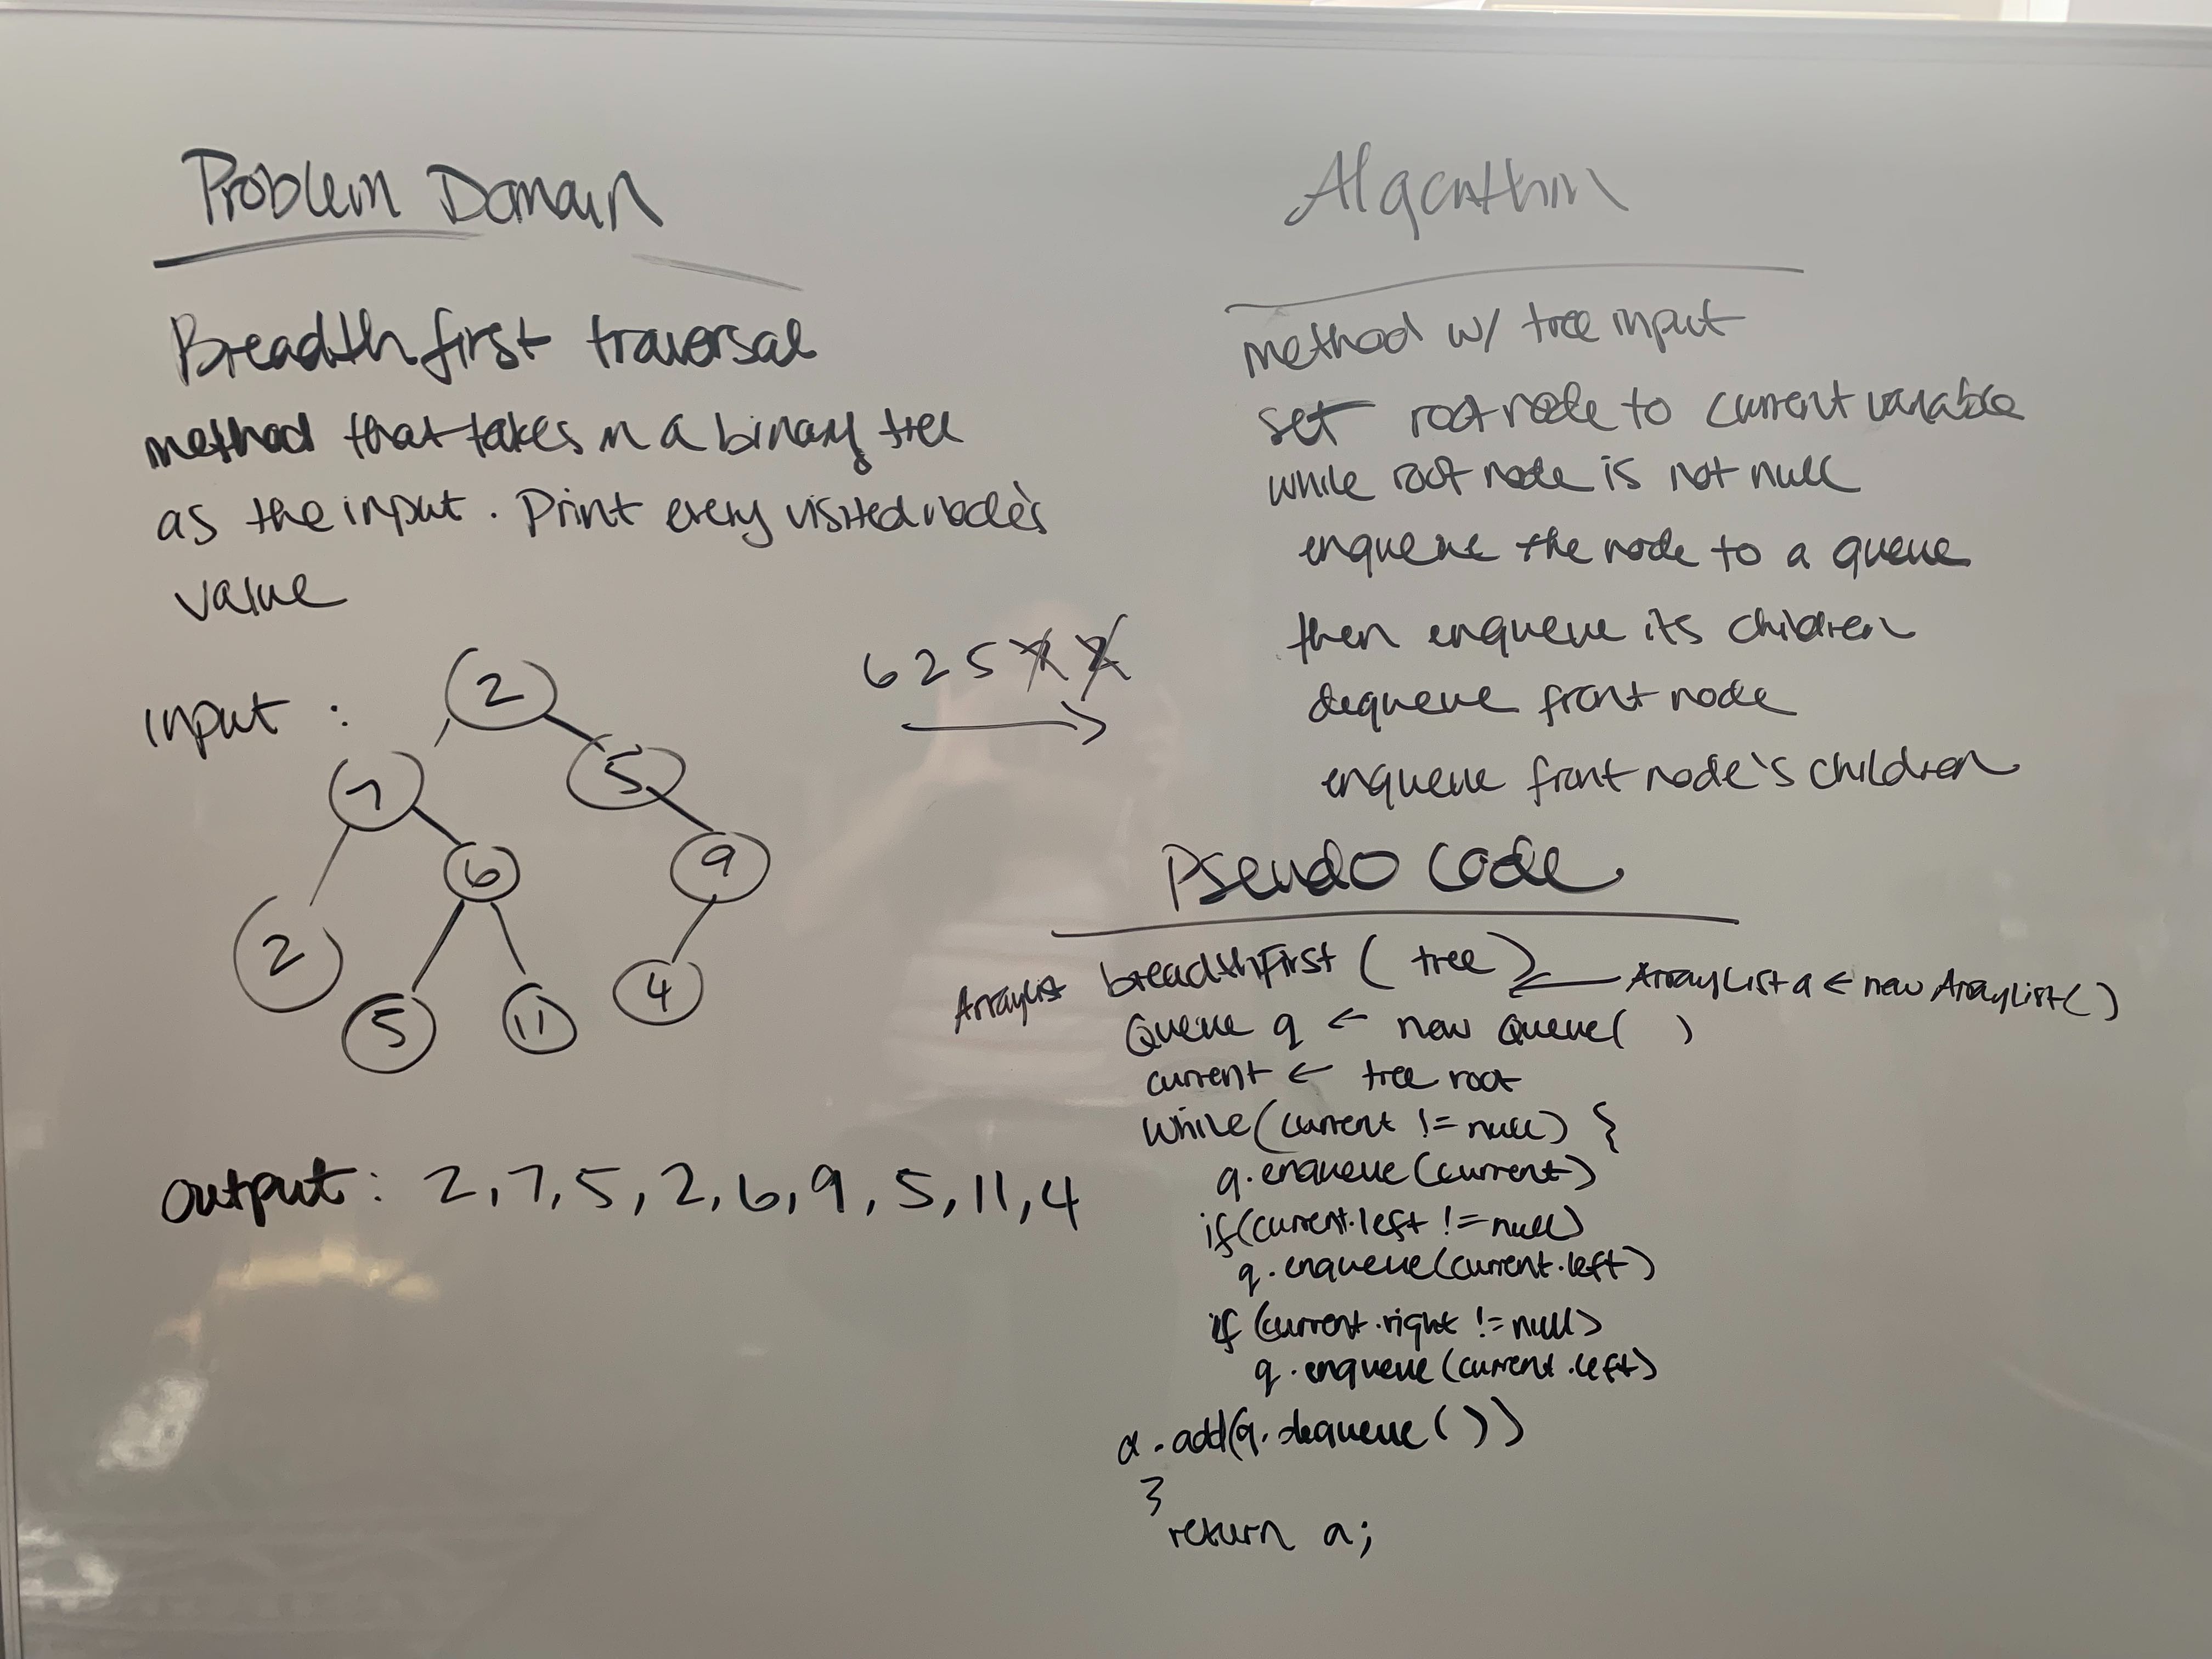 Problem Domain
Breadth first traversal
method that takes in a binary tree
as the input. Print every visited node's
value
input :
2
7
5
6
9
2
5
11
4
6 2 5 7 2
output : 2, 7, 5, 2, 6, 9, 5, 11, 4
Algorithm
method w/ tree input
set root node to current variable
while root node is not null
enqueue the node to a queue
then enqueue its children
dequeue front node
enqueue front node's children
Pseudo Code
ArrayList breadthFirst ( tree ) ← ArrayList a ← new ArrayList()
Queue q ← new Queue( )
current ← tree root
while(current != null) {
q.enqueue(current)
if(current.left != null)
q.enqueue(current.left)
if (current.right != null)
q.enqueue(current.left)
a.add(q.dequeue())
}
return a;